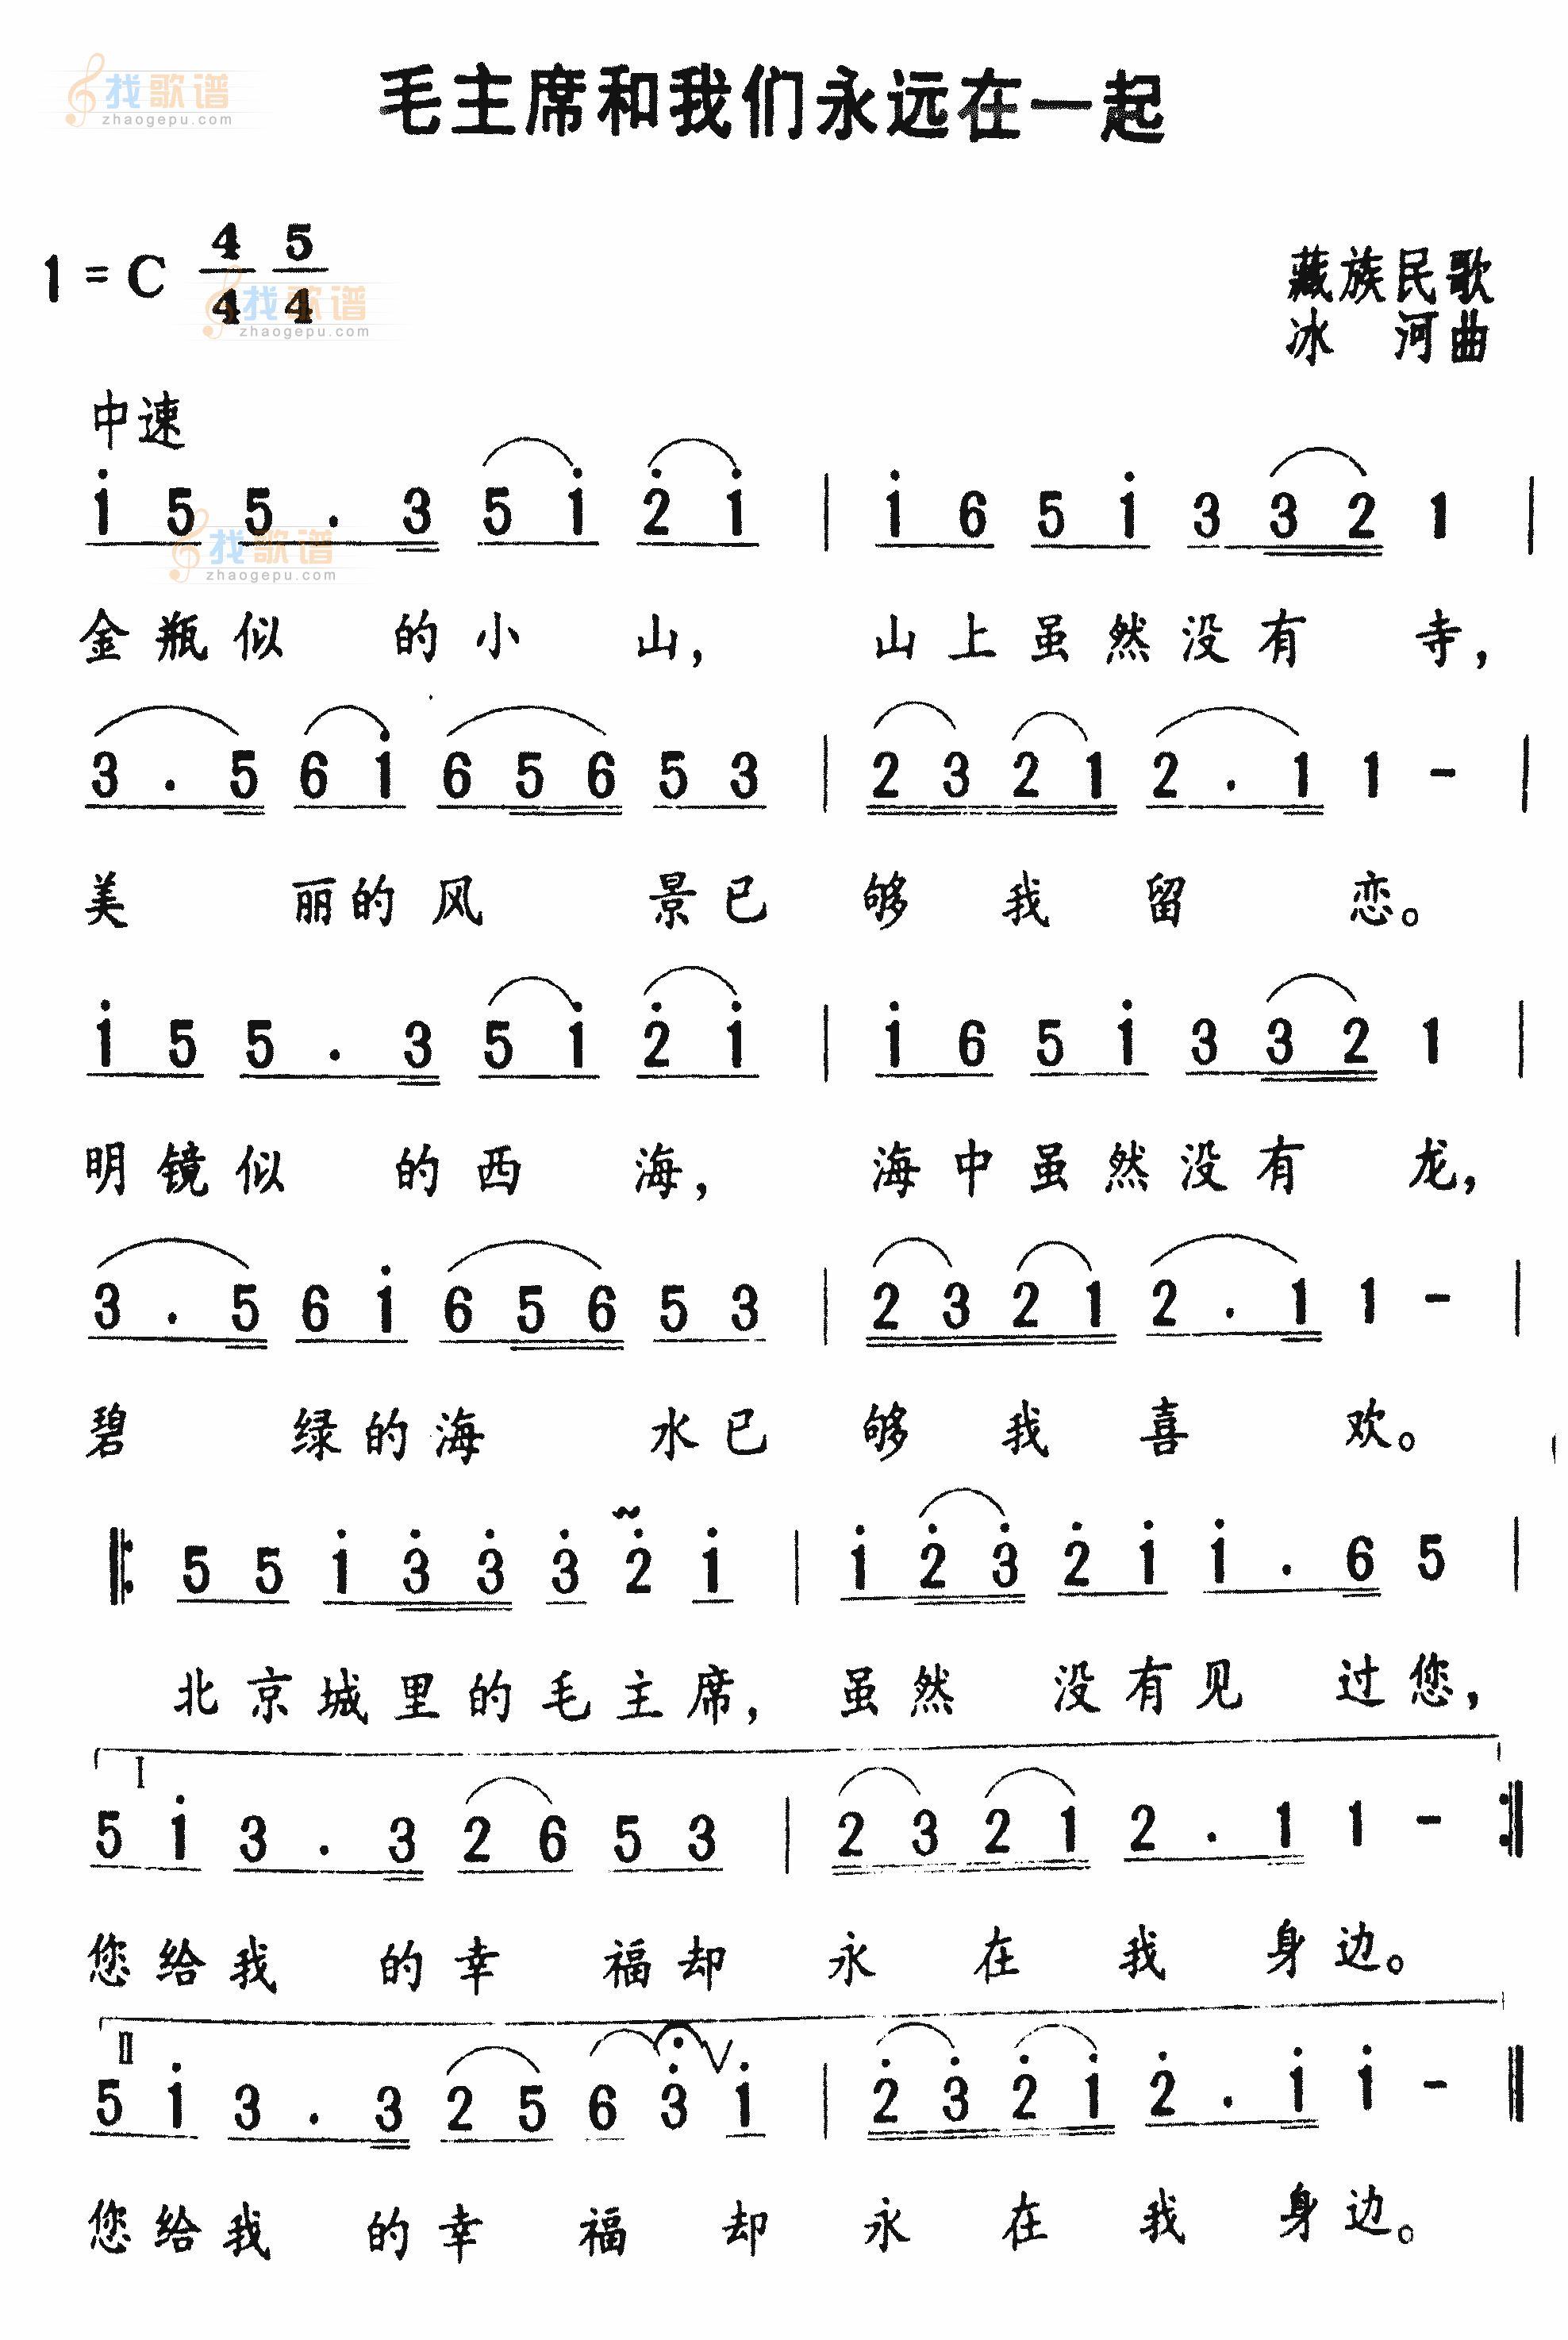 找歌谱
zhaogepu.com
毛主席和我们永远在一起
1 = C 4/4 5/4
找歌谱
zhaogepu.com
藏族民歌
冰 河曲
中速
i 5 5 . 3 5 i 2̇ i | i 6 5 i 3 3 2 1 |
找歌谱
zhaogepu.com
金瓶似 的小 山， 山上虽然没有 寺，
3 . 5 6 i 6 5 6 5 3 | 2 3 2 1 2 . 1 1 - |
美 丽的风 景已 够 我 留 恋。
i 5 5 . 3 5 i 2̇ i | i 6 5 i 3 3 2 1 |
明镜似 的西 海， 海中虽然没有 龙，
3 . 5 6 i 6 5 6 5 3 | 2 3 2 1 2 . 1 1 - |
碧 绿的海 水已 够 我 喜 欢。
‖: 5 5 i 3̇ 3̇ 3̇ 2̇ i | i 2̇ 3̇ 2̇ i i . 6 5 |
北京城里的毛主席， 虽然 没有见 过您，
I
5 i 3 . 3 2 6 5 3 | 2 3 2 1 2 . 1 1 - :‖
您给我 的幸 福却 永 在 我 身边。
II
5 i 3 . 3 2 5 6 3̇ i | 2̇ 3̇ 2̇ i 2̇ . i i - ‖
您给我 的幸 福 却 永 在 我 身边。